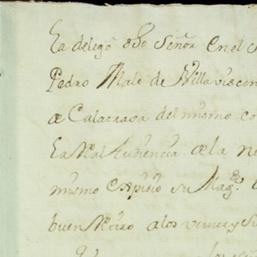 La delegó dho Señor en el
Pedro Malo de Villavicen
de Calatrava del mismo co
La Real Audiencia de la n
mismo expidio su Mag.
buen Retiro a los veinte y s